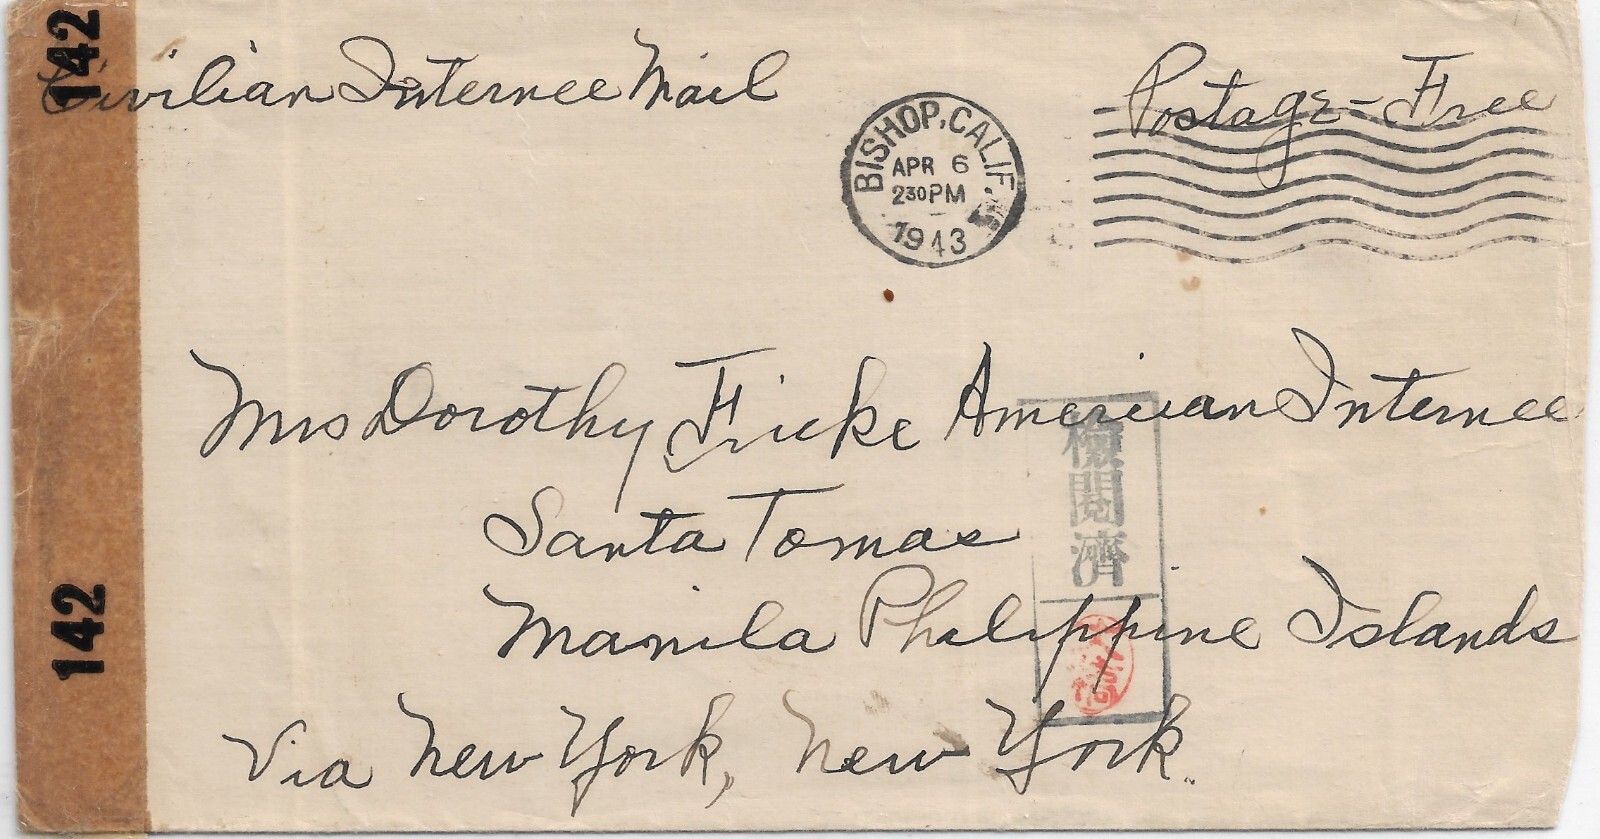 142
Civilian Internee Mail
Postage-Free
BISHOP, CALIF.
APR 6
2 30 PM
1943
Mrs Dorothy Fricke American Internee
Santa Tomas
Manila Philippine Islands
Via New York, New York.
檢閲濟
142